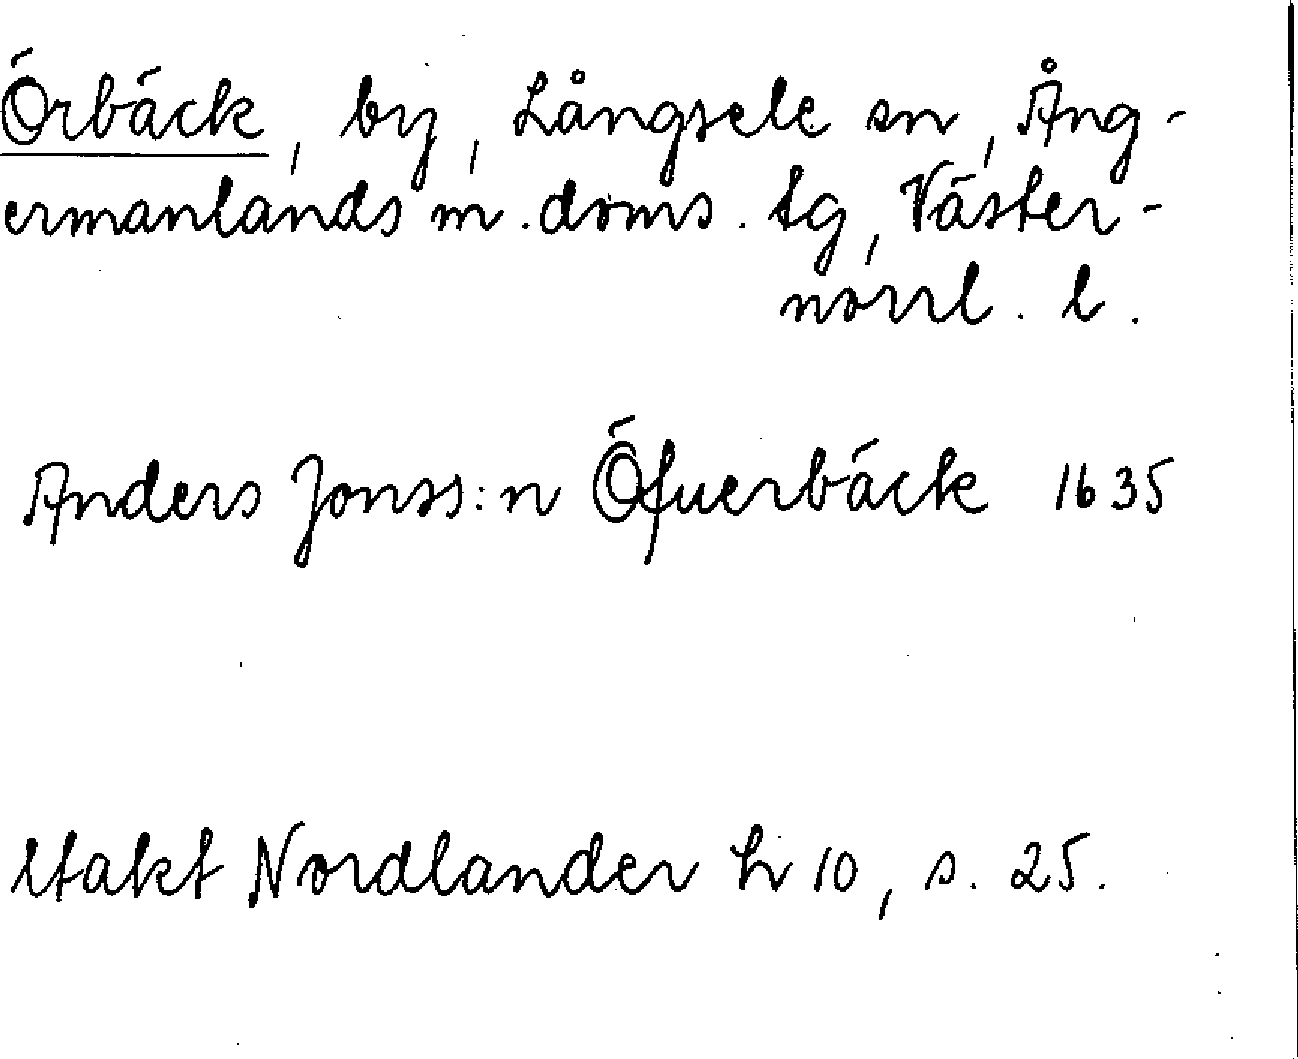 Örbäck, by, Långsele sn, Ång-
ermanlands m. doms. tg, Väster-
norrl. l.
Anders Jonss:n Öfuerbäck 1635
Utakt Nordlander h 10, s. 25.